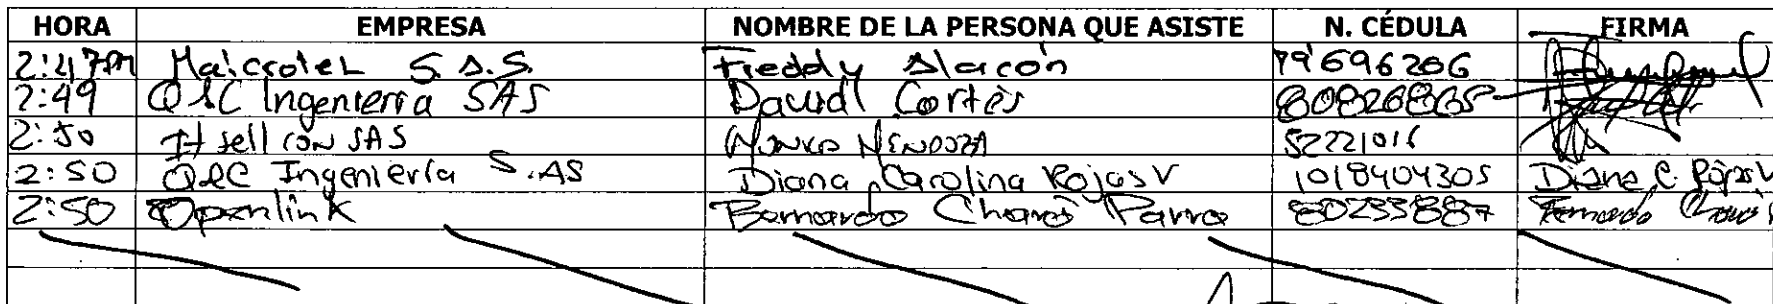 HORA EMPRESA NOMBRE DE LA PERSONA QUE ASISTE N. CÉDULA FIRMA
2:47PM Maicrotel S.A.S. Freddy Alarcón 79696206
2:49 Q&C Ingenierría SAS David Cortés 80826865
2:50 SAS 52221016
2:50 Q&C Ingeniería S.AS Diana Carolina Rojas V 1018404305 Diana C. Rojas V
2:50 Openlink Bernardo Chaves Parra 80233887